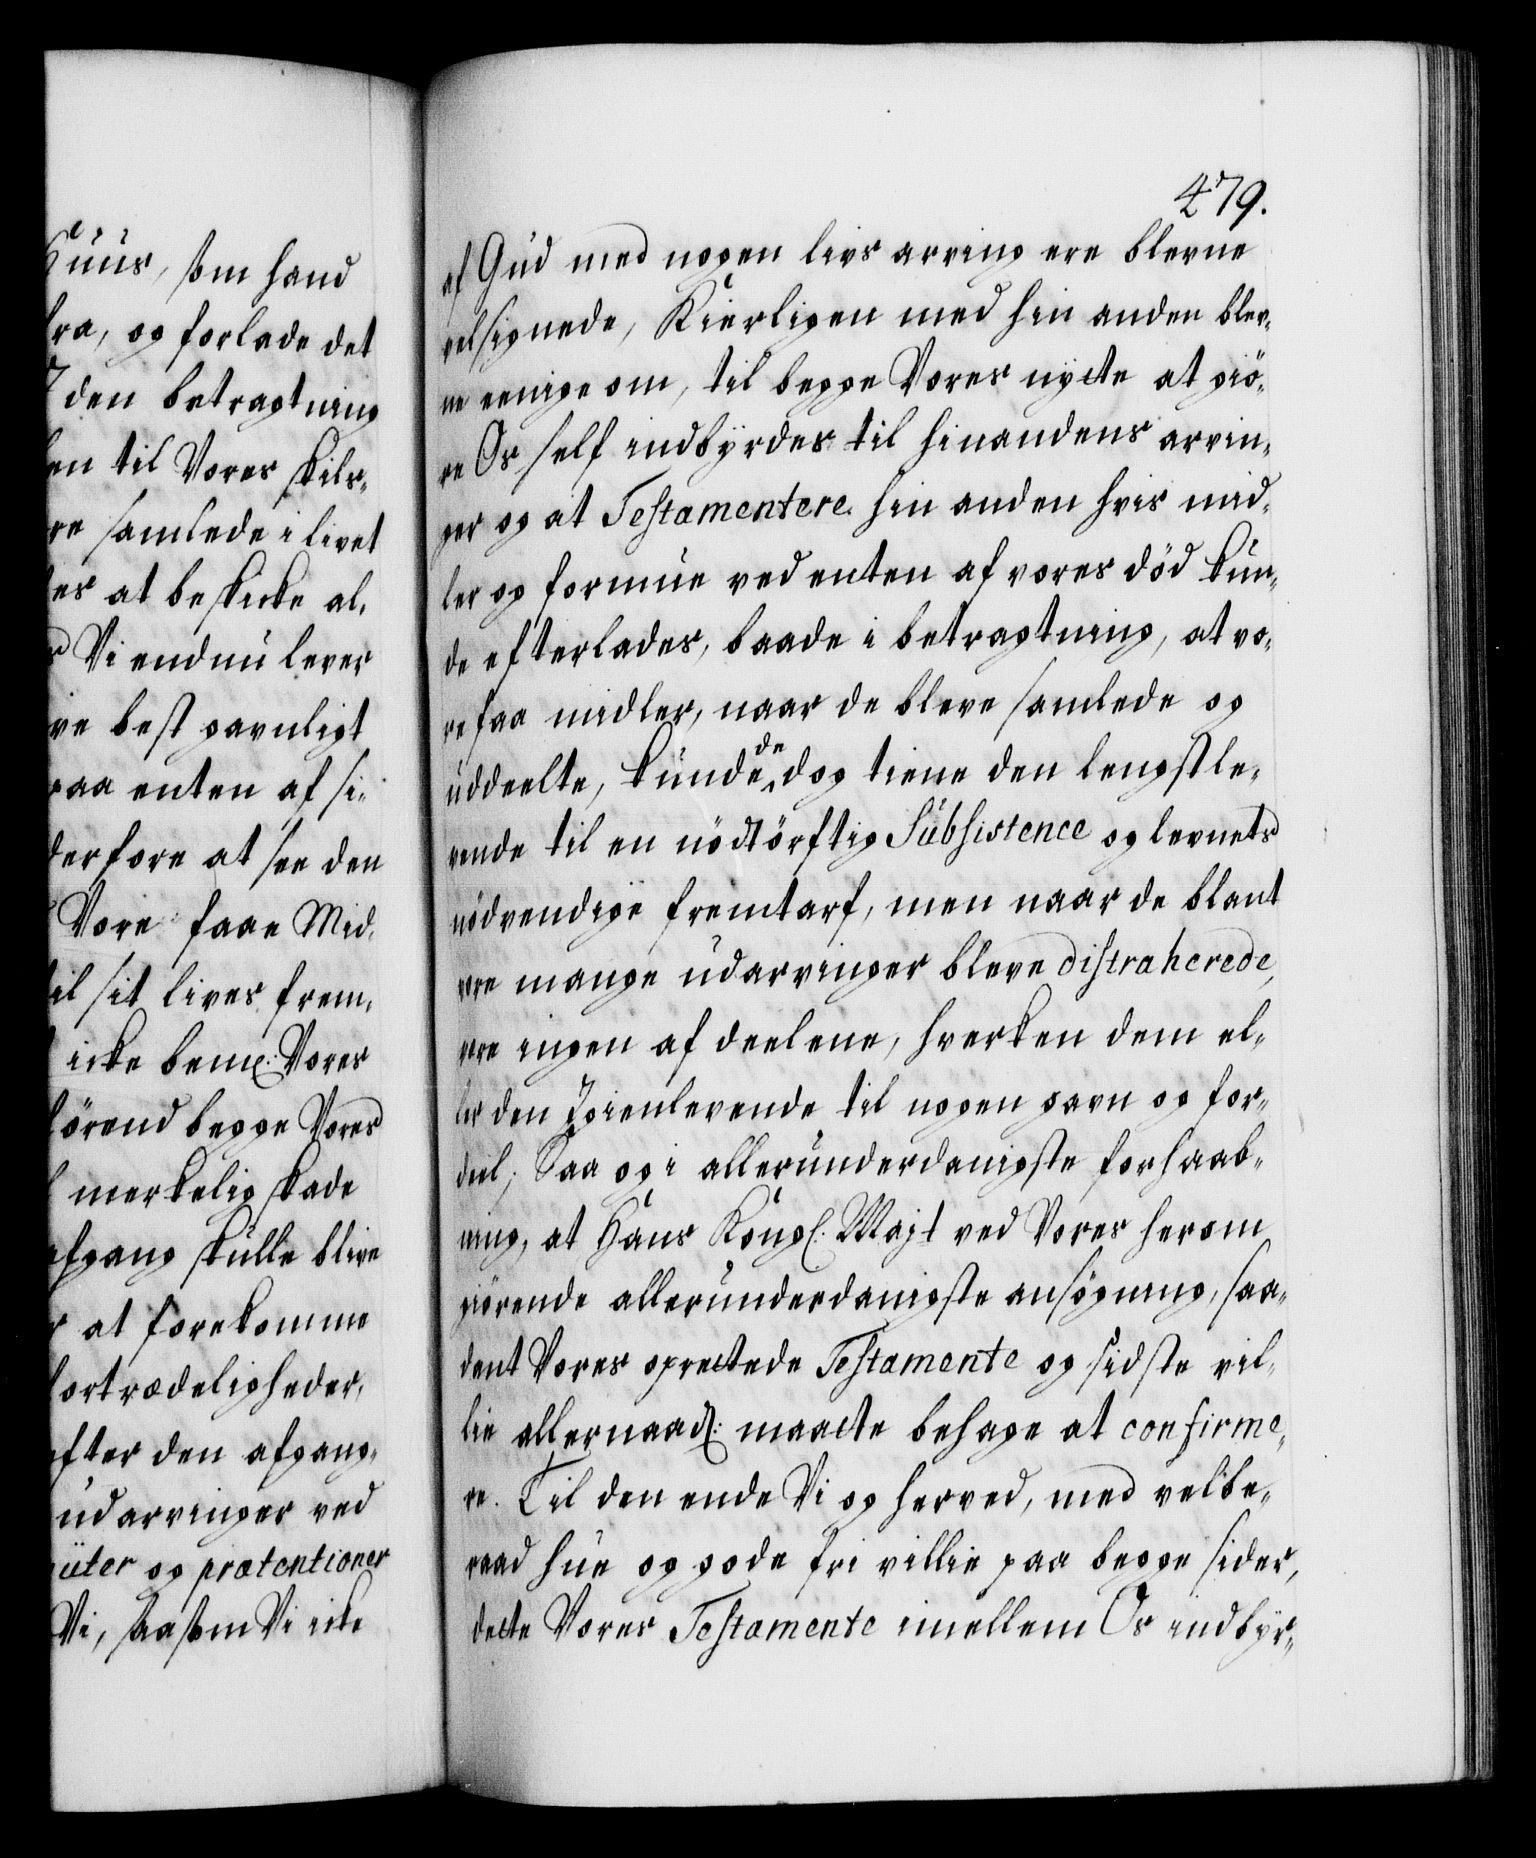 Huus, som hand
fra, og forlade det
I den betragtning
en til Vores skils-
re samlede i livet
es at beskicke al-
Vi endnu lever
ve best gavnligt
paa enten af si-
derfore at see den
Vore faae Mid-
til sit lives frem-
icke bem: Vores
hörend begge Vores
merkelig skade
afgang skulle blive
at forekomme
fortrædeligheder,
efter den afgang-
udarvinger ved
üter og prætentioner
Vi, saasom Vi icke
479.
af Gud med nogen livs arving ere blevne
velsignede, Kierligen med hin anden blev-
ne eenige om, til begge Vores nÿtte at giö-
re Os self indbÿrdes til hinandens arvin-
ger og at Testamentere hin anden hvis mid-
ler og formue ved enten af vores död kun-
de efterlades, baade i betragtning, at vo-
re faa midler, naar de bleve samlede og
uddeelte, kunde de dog tiene den lengstle-
vende til en nödtörftig Subsistence og levnets
nödvendige fremtarf, men naar de blant
vre mange udarvinger bleve distraherede,
vre ingen af deelene, hverken dem el-
ler den Igienlevende til nogen gavn og for-
deel; Saa og i allerunderdanigste forhaab-
ning, at Hans Kongl: Majt ved Vores herom
giörende allerunderdanigste ansögning, saa-
dant Vores oprettede Testamente og sidste vil-
lie allernaad: maatte behage at confirme-
re. Til den ende Vi og herved, med velbe-
raad hue og gode fri villie paa begge sider,
dette Vores Testamente imellem Os indbÿr-